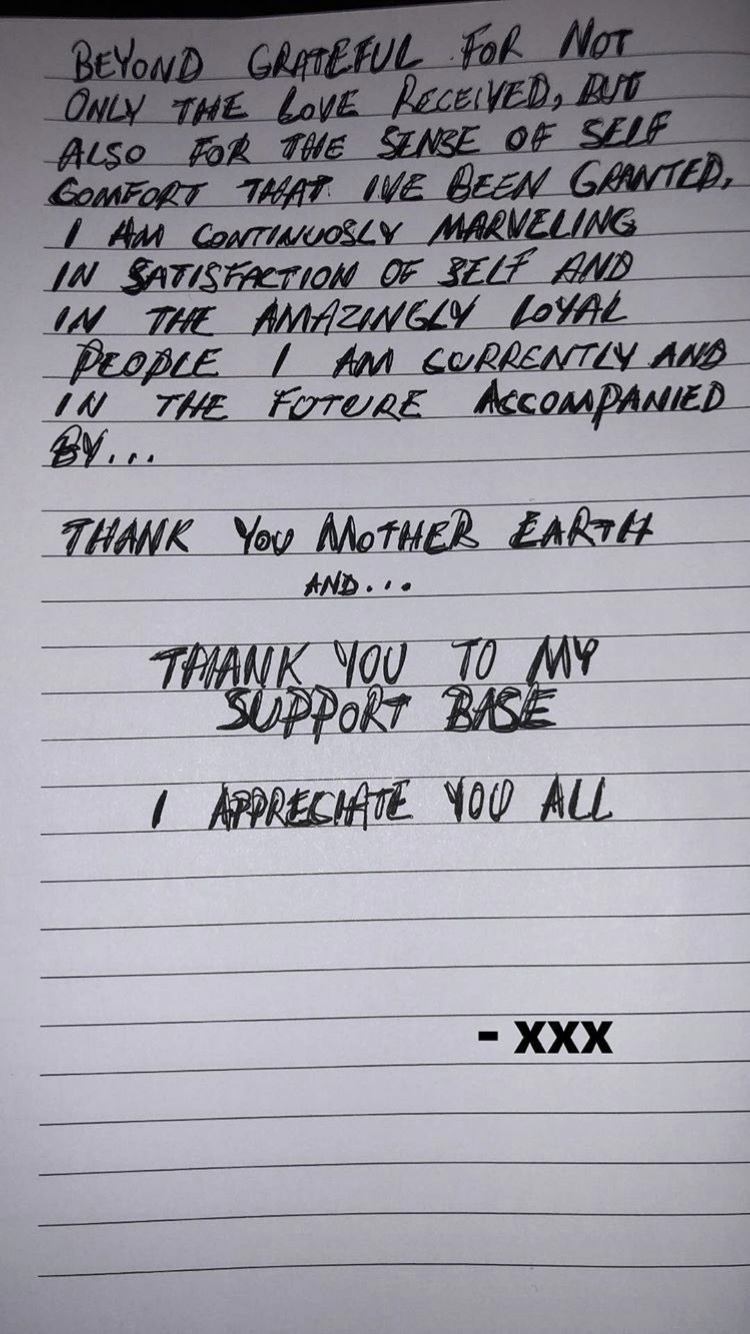 BEYOND GRATEFUL FOR NOT
ONLY THE LOVE RECEIVED, BUT
ALSO FOR THE SENSE OF SELF
COMFORT THAT I'VE BEEN GRANTED,
I AM CONTINUOSLY MARVELING
IN SATISFACTION OF SELF AND
IN THE AMAZINGLY LOYAL
PEOPLE I AM CURRENTLY AND
IN THE FUTURE ACCOMPANIED
BY...
THANK YOU MOTHER EARTH
AND...
THANK YOU TO MY
SUPPORT BASE
I APPRECIATE YOU ALL
- xxx